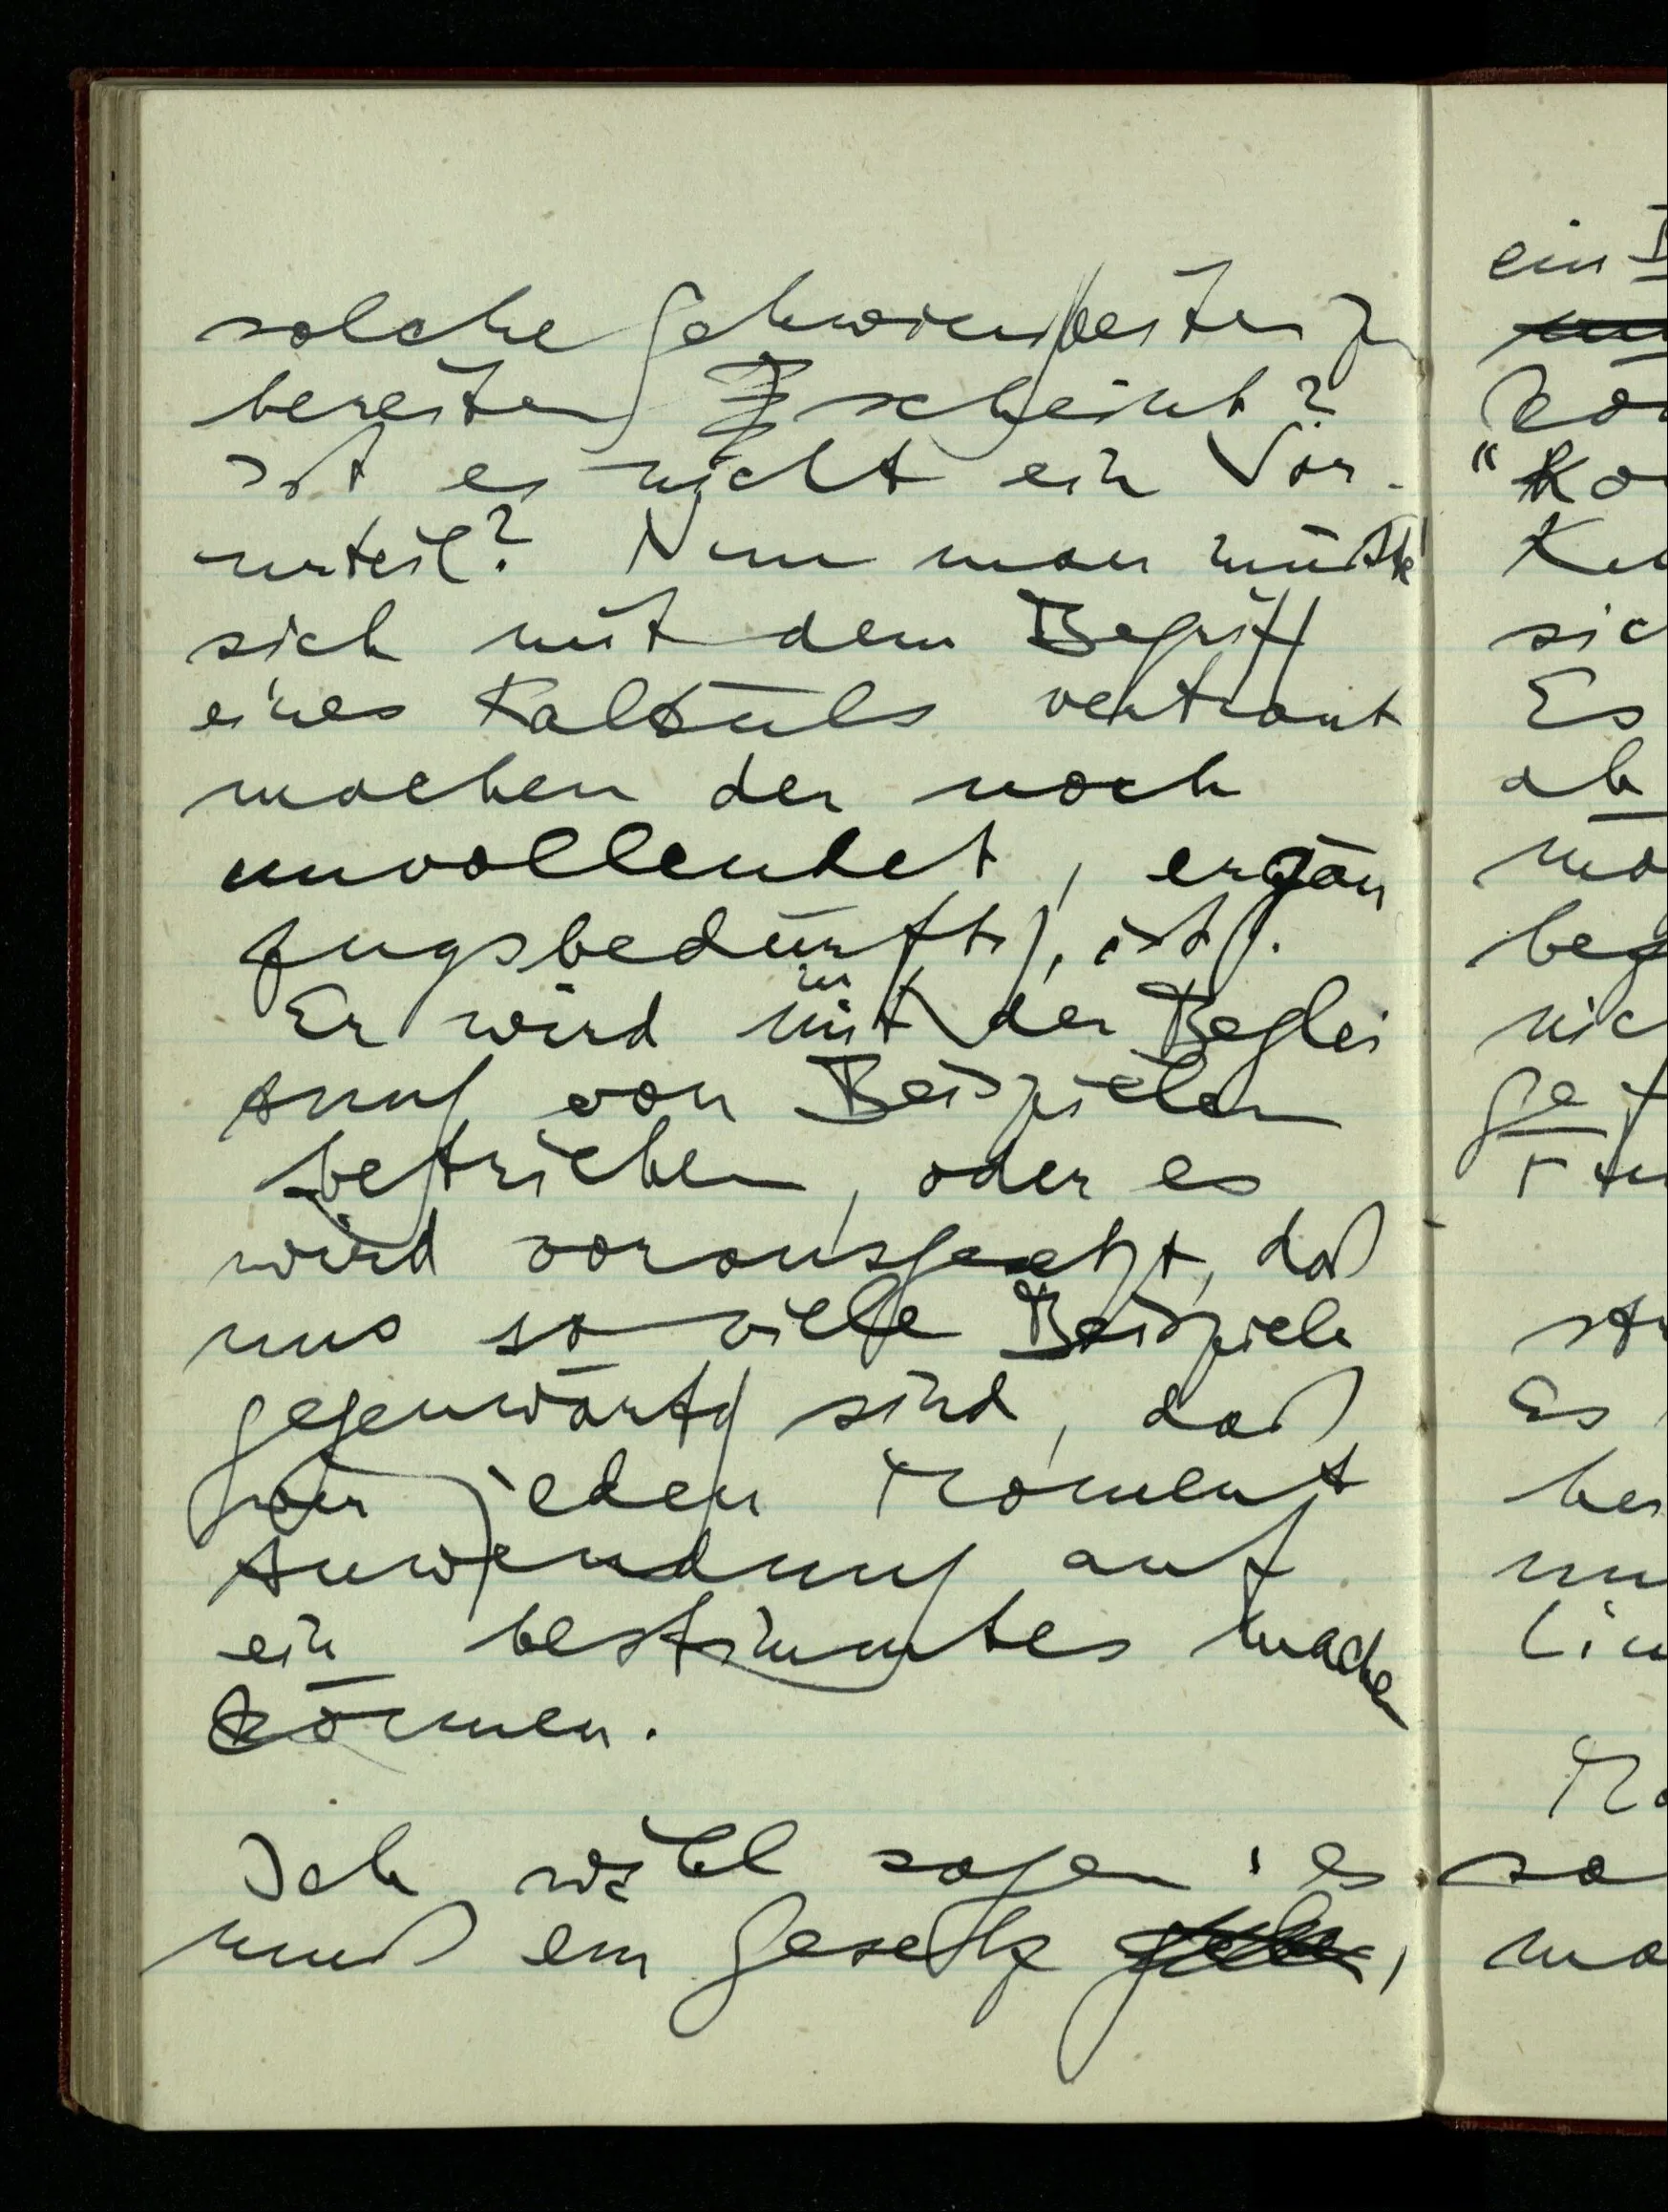 solche Schwierigkeiten zu
bereiten scheint?
Ist es nicht ein Vor-
urteil? Nun man müßte
sich mit dem Begriff
eines Kalküls vertraut
machen der noch
unvollendet, ergän
zugsbedürftig, ist.
Er wird mit in der Beglei
tung von Beispielen
betrieben, oder es
wird vorausgesetzt, daß
uns so viele Beispiele
gegenwärtig sind, daß
wir jeden Moment
Anwendung auf
ein bestimmtes machen
können.
Ich will sagen: es
muß ein Gesetz geben,
ein
sic
Es
ab
be
nic
ge
Es
be
so